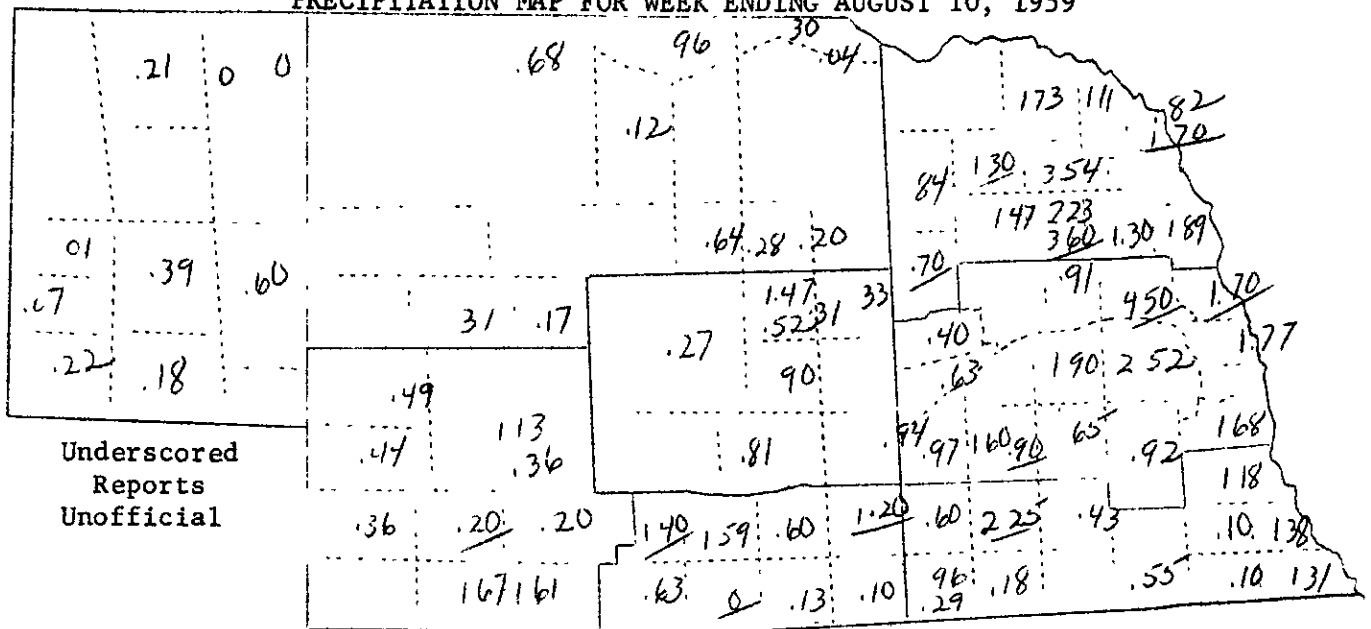 PRECIPITATION MAP FOR WEEK ENDING AUGUST 10, 1959
.68 96 30 .04
.21 0 0
173 111 82
1.70
.12
84 130 354
147 223
360 1.30 189
.64 .28 .20
01 .39 .60
.70 .91
.07 31 .17
1.47 33
.52 31
450 1.70
.27 .40 1.77
.22 .18
90 .63 190 252
.49
.44 113
.36
.81 .94 .97 160 .90 65 .92 168
Underscored
Reports
Unofficial
118
.36 .20 .20 140 159 .60 1.20 .60 225 .43 .10 138
167 161 .63 0 .13 .10 96 .18 .55 .10 131
.29